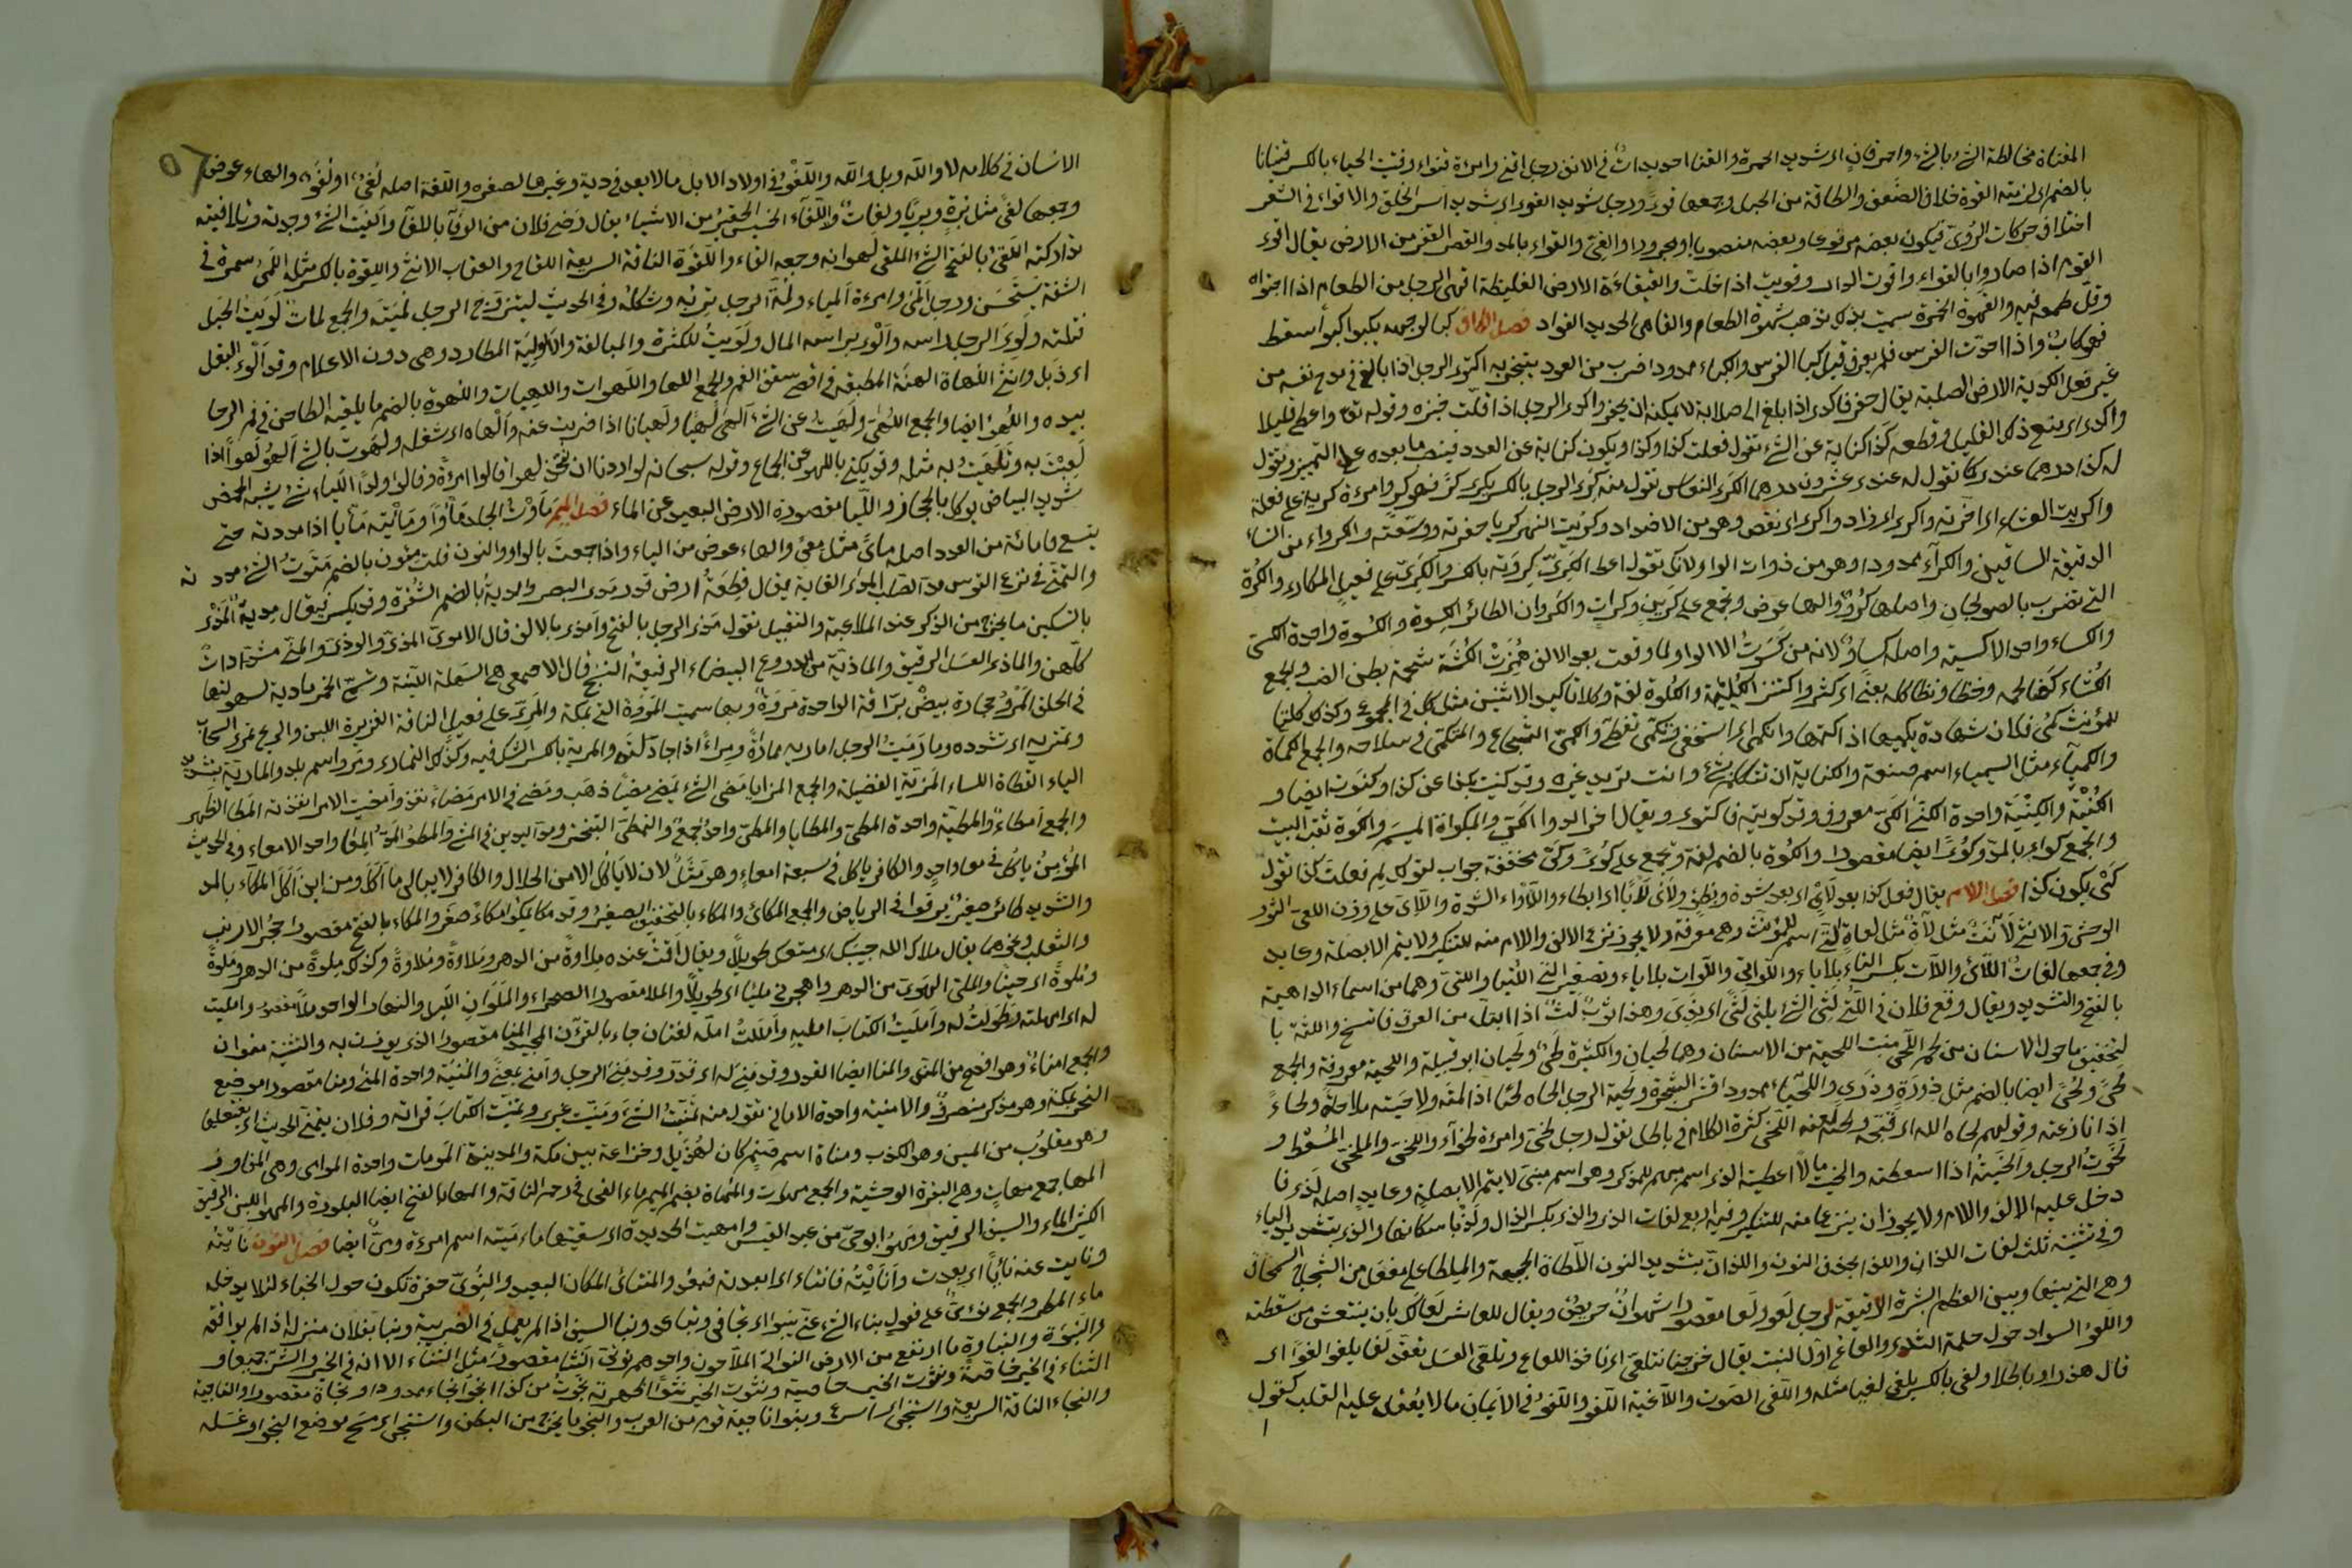 المقناة مخالطة الشئ بالشئ واحمر قانٍ اى شديد الحمرة والقنا احديداب فى الانف رجل اقنى وامرءة قنواء وقنيت الحياء بالكسر قنيانا
بالضم اى لزمته القوة خلاف الضعف والطاقة من الحبل وجمعها قوى ورجل شديد القوى اى شديد اسر الخلق والاقواء فى الشعر
اختلاف حركات الروى فيكون بعضه مرفوعا وبعضه منصوبا او مجرورا والقى والقواء بالمد والقصر القفر من الارض يقال اقوى
القوم اذا صاروا بالقواء واقوت الدار وقويت اذا خلت والقيقاءة الارض الغليظة اقهى الرجل من الطعام اذا اجتواه
وقل طعمه والقهوة الخمرة سميت بذلك تذهب شهوة الطعام والقاهى الحديد الفواد فصل الكاف كبا لوجهه يكبوا كبوا سقط
فهو كاب واذا احدث الفرس فلم يعرق قيل كبا الفرس والكباء ممدودا ضرب من العود يتبخر به اكترى الرجل اذا بالغ فى مدح نفسه من
غير فعل الكدية الارض الصلبة يقال حفر فاكدى اذا بلغ الى صلابة لا يمكنه ان يحفر واكدى الرجل اذا قلت خيره وقوله تع واعطى قليلا
واكدى اى يتبع ذلك القليل وقطعه كذا كناية عن الشئ تقول فعلت كذا وكذا ويكون كناية عن العدد فينصب ما بعده على التميز وتقول
له كذا درهما عندى كما تقول له عندى عشرون درهما الكرى النعاس تقول منه كرى الرجل بالكسر يكرى كرى فهو كرٍ وامرءة كرية على فعلة
واكريت العشاء اى اخرته واكرى اى زاد واكرى اى نقص وهو من الاضداد وكريت النهر كريا حفرته ووسعته والكرواء من النساء
الدقيقة الساقين والكراء ممدودا وهو من ذوات الواو لانك تقول اعط الكرى كروته بالكسر والكرى على فعيل المكارى والكرة
التى تضرب بالصولجان واصلها كرو والهاء عوض وتجمع على كرين وكرات والكروان الطائر الكسوة والكسوة واحدة الكسى
والكساء واحد الاكسية واصله كساو لانه من كسوت الا ان الواو لما وقعت بعد الالف همزت الكشية شحمة بطن الضب والجمع
وكذلك كلتا
للمؤنث كمى فلان شهادة يكميها اذا كتمها وانكمى اى استخفى وتكمى تغطى والكمى الشجاع والمتكمى فى سلاحه والجمع الكماة
والكيمياء مثل السيمياء اسم صنعة والكناية ان تتكلم بشئ وانت تريد غيره وقد كنيت بكذا عن كذا وكنوت ايضا و
الكنية والكنية واحدة الكنى الكى معروف وقد كويته فاكتوى ويقال اخر الدواء الكى والمكواة الميسم والكوة ثقب البيت
والجمع كواء بالمد وكوى ايضا مقصورا والكوة بالضم لغة وتجمع على كوى وكى مخففة جواب لقولك لم فعلت كذا تقول
كى يكون كذا فصل اللام يقال فعل كذا بعد لأى اى بعد شدة وبطء ولأى لأيا اى ابطاء واللأواء الشدة واللأى على وزن اللعى الثور
الوحشى والانثى لآة مثل لعاة التى اسم للمؤنث وهى معرفة ولا يجوز نزع الالف واللام منه للتنكير ولا يتم الا بصلة وعايد
وفى جمعها لغات اللائى واللات بكسر التاء بلا ياء واللواتى واللوات بلا ياء وتصغير التى اللتيا واللتى وهما من اسماء الداهية
بالفتح والتشديد ويقال وقع فلان فى اللتى لثى الشئ يلثى لثى اى ندى وهذا ثوب لث اذا ابتل من العرق فاتسخ واللثة با
لتخفيف ما حول الاسنان من لحم اللحى منبت اللحية من الانسان وهما لحيان والكثيرة لحى ولحيان ابو قبيلة واللحية معروفة والجمع
لحى ولحى ايضا بالضم مثل ذروة وذرى واللحاء ممدود قشر الشجرة ولحيه الرجل الحاه لحيا اذا لمته ولاحيته ملاحاة ولحاء
اذا نازعته وقولهم لحاه الله اى قبحه ولعنه اللخى كثرة الكلام فى باطل تقول رجل لخى وامرءة لخواء واللخى والملخى المسعط و
لخوت الرجل والخيته اذا اسعطته والخيته مالا اعطيته الذى اسم مبهم للمذكر وهو اسم مبنى لا يتم الا بصلة وعايد اصله لذى فا
دخل عليه الالف واللام ولا يجوز ان ينزعا منه للتنكير وفيه اربع لغات الذى والذ بكسر الذال ولذ باسكانها والذى بتشديد الياء
وفى تثنيته ثلث لغات اللذان واللذا بحذف النون واللذان بتشديد النون اللطاة الجبهة والملطا على مفعل من الشجاج السمحاق
وهى التى بينها وبين العظم القشرة الرقيقة رجل لعو ولعا مقصورا شهوان حريص ويقال للعاثر لعا لك بان ينتعش من سقطته
واللعو السواد حول حلمة الثدى واللعاع اول النبت يقال خرجنا نتلعى اى ناخذ اللعاع وتلعى العسل تعقد لغا يلغو لغوا اى
قال هذرا وباطلا ولغى بالكسر يلغى لغيا مثله واللغى الصوت واللاغية اللغو واللغو فى الايمان ما لا يعقد عليه القلب كقول
الانسان فى كلامه لا والله وبلى والله واللغو فى اولاد الابل ما لا يعد فى دية وغيرها لصغره واللغة اصله لغى او لغو والهاء عوض
وجمعها لغى مثل برة وبرى ولغات واللفاء الخسيس الحقير من الاشياء يقال رضى فلان من الوفا باللفا والفيت الشئ وجدته وتلافيته
تداركته اللقى بالفتح الشئ الملقى لهوانه وجمعه القاء واللقوة الناقة السريعة اللقاح والعقاب الانثى واللقوة بالكسر مثله اللمى سمرة فى
الشفة يستحسن ورجل المى وامرءة لمياء ولمة الرجل تربه وشكله وفى الحديث ليتزوج الرجل لمته والجمع لمات لويت الحبل
فتلته ولوى الرجل راسه والوى براسه المال ولويت للكثرة والمبالغة والالوية المطارد وهى دون الاعلام وقد الوى البقل
اى ذبل وانثنى اللهاة الهنة المطبقة فى اقصى سقف الفم والجمع اللها واللهوات واللهيات واللهوة بالضم ما يلقيه الطاحن فى فم الرحا
بيده واللهوة ايضا والجمع اللهى ولهيت عن الشئ الهى لهيا ولهيانا اذا ضربت عنه والهاه اى شغله ولهوت بالشئ الهو لهوا اذا
لعبت به وتلهيت به مثله وقد يكنى باللهو عن الجماع وقوله سبحانه لو اردنا ان نتخذ لهوا قالوا امرءة وقالوا ولدا اللياء شئ يشبه الحمص
شديد البياض يوكل بالحجاز والليا مقصورة الارض البعيدة عن الماء فصل الميم مأوت الجلد مأوا ومأيته مأيا اذا مددته حتى
يتسع ومائة من العدد اصله مأى مثل معى والهاء عوض من الياء واذا جمعت بالواو والنون قلت مئون بالضم متوت الشئ مددته
والتمتى فى نزع القوس مد الصلب المدى الغاية يقال قطعة ارض قدر مدى البصر والمدية بالضم الشفرة وقد يكسر فيقال مدية المذى
بالتسكين ما يخرج من الذكر عند الملاعبة والتقبيل تقول مذى الرجل بالفتح وامذى بالالف قال الاموى المذى والودى والمنى مشددات
كلهن والماذى العسل الرقيق والماذية من الدروع البيضاء الرقيقة النسج قال الاصمعى هى السهلة اللينة وتسمى الخمر ماذية لسهولتها
فى الحلق المرو حجارة بيض براقة الواحدة مروة وبها سميت المروة التى بمكة والمرى على فعيل الناقة الغزيرة اللبن والريح تمرى السحاب
وتمتريه اى تستدره وماريت الرجل اماريه مماراة ومراء اذا جادلته والمرية بالكسر الشك فيه وكذلك التمارى ومرو اسم بلد والمارية بتشديد
الياء القطاة الملساء المزية الفضيلة والجمع المزايا مضى الشئ يمضى مضيا ذهب ومضى فى الامر مضاء نفذ وامضيت الامر انفذته المطا الظهر
والجمع امطاء والمطية واحدة المطى والمطايا والمطى واحد وجمع والتمطى التبختر ومد اليدين فى المشى والمطو المد المعا واحد الامعاء وفى الحديث
المؤمن ياكل فى معا واحد والكافر ياكل فى سبعة امعاء وهو مثل لان لا ياكل الا من الحلال والكافر لا يبالى ما اكل ومن اين اكل المكاء بالمد
والتشديد طائر صغير يزقوا فى الرياض والجمع المكاكى والمكاء بالتخفيف الصفير وقد مكا يمكوا مكاء صفر والمكا بالفتح مقصورا جحر الارنب
والثعلب ونحوهما يقال ملاك الله حبيبك اى متعك طويلا ويقال اقمت عنده ملاوة من الدهر وملاوة وملاوة وكذلك ملوة من الدهر وملوة
وملوة اى حينا والملى الهوى من الدهر واهجرنى مليا اى طويلا والملا مقصورا الصحراء والملوان الليل والنهار الواحد ملا مقصور وامليت
له اى امهلته وطولت له وامليت الكتاب املى وامللت امله لغتان جاء بالقرآن المجيد المنا مقصورا الذى يوزن به والتثنية منوان
والجمع امناء وهو افصح من المن والمنا ايضا القدر وقد منى له اى قدر وقد منى الرجل وامنى بمعنى والمنية واحدة المنى ومنا مقصورا موضع
النحر بمكة وهو مذكر منصرف والامنية واحدة الامانى تقول منه تمنيت الشئ ومنيت غيرى وتمنيت الكتاب قراته وفلان يتمنى الحديث اى يفتعلها
وهو مقلوب من المين وهو الكذب ومناة اسم صنم كان لهذيل وخزاعة بين مكة والمدينة الموماة واحدة الموامى وهى المفاوز
المها جمع مهاة وهى البقرة الوحشية والجمع مهوات والمهاة بضم الميم ماء الفحل فى رحم الناقة والمها بالفتح ايضا البلورة والمهو اللبن الرقيق
الكثير الماء والسيف الرقيق ومهو ابو حى من عبد القيس وامهيت الحديدة اى سقيتها ماء مية اسم امرءة ومى ايضا فصل النون نايته
ونايت عنه نايا اى بعدت وانايته فانتاى اى ابعدته فبعد والمنتاى المكان البعيد والنؤى حفرة تكون حول الخباء لئلا يدخله
ماء المطر والجمع نؤى على فعول نباء الشئ عنى ينبوا اى تجافى وتباعد ونبا السيف اذا لم يعمل فى الضريبة ونبا بفلان منزله اذا لم يوافقه
والنبوة والنباوة ما ارتفع من الارض النواتى الملاحون واحدهم نوتى النثا مقصور مثل الثناء الا انه فى الخير والشر جميعا و
الثناء فى الخير خاصة ونثوت الخبر نثوا اظهرته نجوت من كذا انجوا نجاء ممدودا ونجاة مقصورا والناجية
والنجاء الناقة السريعة واستنجى اى اسرع وبنوا ناجية قوم من العرب والنجو ما يخرج من البطن واستنجى اى مسح موضع النجو او غسله